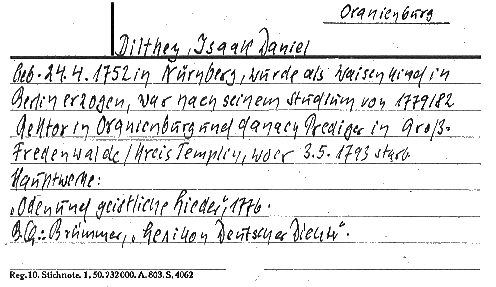 Oranienburg
Dilthey, Isaak Daniel
Geb. 24.4.1752 in Nürnberg, wurde als Waisenkind in
Berlin erzogen, war nach seinem Studium von 1779/82
Rektor in Oranienburg und danach Prediger in Groß-
Fredenwalde/Kreis Templin, wo er 3.5.1793 starb.
Hauptwerke:
„Oden und geistliche Lieder“, 1776.
B.Q.: Brümmer, „Lexikon Deutscher Dichter“.
Reg. 10. Stichnote. 1, 50. 232000. A. 803. S, 4062